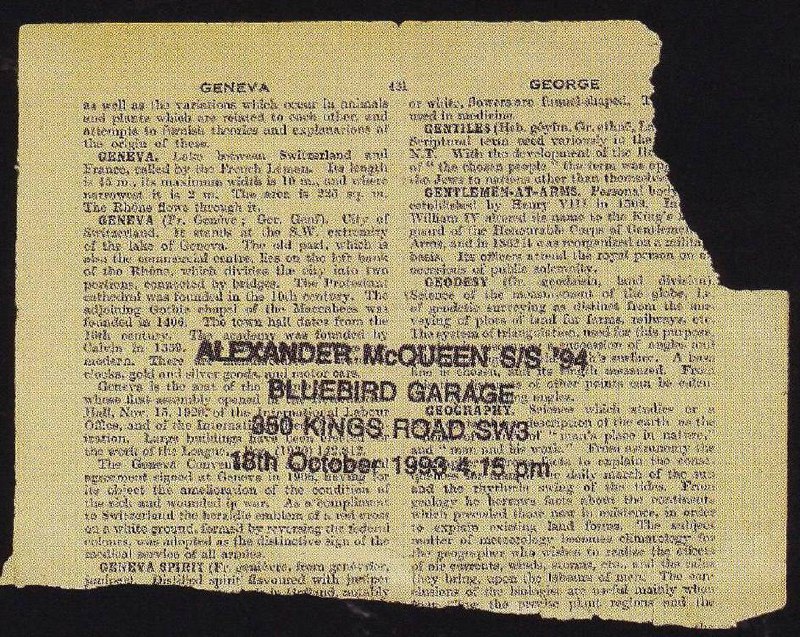 GENEVA 431 GEORGE
as well as the variations which occur in animals
and plants which are related to each other, and
attempts to furnish theories and explanations of
the origin of these.
GENEVA. Lake between Switzerland and
France, called by the French Léman. Its length
is 45 m., its maximum width is 10 m., and where
narrowest it is 2 m. The area is 225 sq. m.
The Rhône flows through it.
GENEVA (Fr. Genève; Ger. Genf). City of
Switzerland. It stands at the S.W. extremity
of the lake of Geneva. The old part, which is
also the commercial centre, lies on the left bank
of the Rhône, which divides the city into two
portions, connected by bridges. The Protestant
cathedral was founded in the 10th century. The
adjoining Gothic chapel of the Maccabees was
founded in 1406. The town hall dates from the
16th century. The academy was founded by
Calvin in 1559.
modern. There
clocks, gold and silver goods, and motor cars.
Geneva is the seat of the
whose first assembly opened
Hall, Nov. 15, 1920, of the International Labour
Office, and of the
Large buildings have been
the work of the League.
The Geneva
agreement signed at Geneva in having for
its object the amelioration of the condition of
the sick and wounded in war. As a compliment
to Switzerland the heraldic emblem of a red cross
on a white ground, formed by reversing the federal
colours, was adopted as the distinctive sign of the
medical service of all armies.
GENEVA SPIRIT (Fr. genièvre, from
Distilled spirit flavoured with juniper
notably
or white, flowers are funnel-shaped.
used in medicine.
GENTILES (Heb. Gr.
Scriptural term used variously in the
N.T. With the development of the
of "the chosen people" the term was
the Jews to nations other than
GENTLEMEN-AT-ARMS. Personal
established by Henry VIII in
William IV altered its name to the King's
guard of the Honourable Corps of
Arms, and in 1862 it was reorganized on a
basis. Its officers attend the royal person on
occasions of public solemnity.
GEODESY (Gr. land division).
Science of the measurement of the globe, i.e.
of geodetic surveying as distinct from the
of plots of land for farms, railways, etc.
The system of triangulation, used for this purpose,
succession of angles and
surface. A
line is chosen, and its length measured. From
of other points can be
angles.
GEOGRAPHY. Science which studies or a
description of the earth as the
of "man's place in nature,"
and "man and his work." From astronomy the
to explain the
the daily march of the sun
and the rhythmic swing of the tides. From
geology he borrows facts about the continents
which preceded those now in existence, in order
to explain existing land forms. The subject
matter of meteorology becomes climatology for
the geographer who wishes to realise the effects
of air currents, winds, storms, etc., and the rains
they bring, upon the labours of men. The
of the biologist are useful mainly when
the precise plant regions and the
ALEXANDER McQUEEN S/S '94
BLUEBIRD GARAGE
350 KINGS ROAD SW3
18th October 1993 4.15 pm